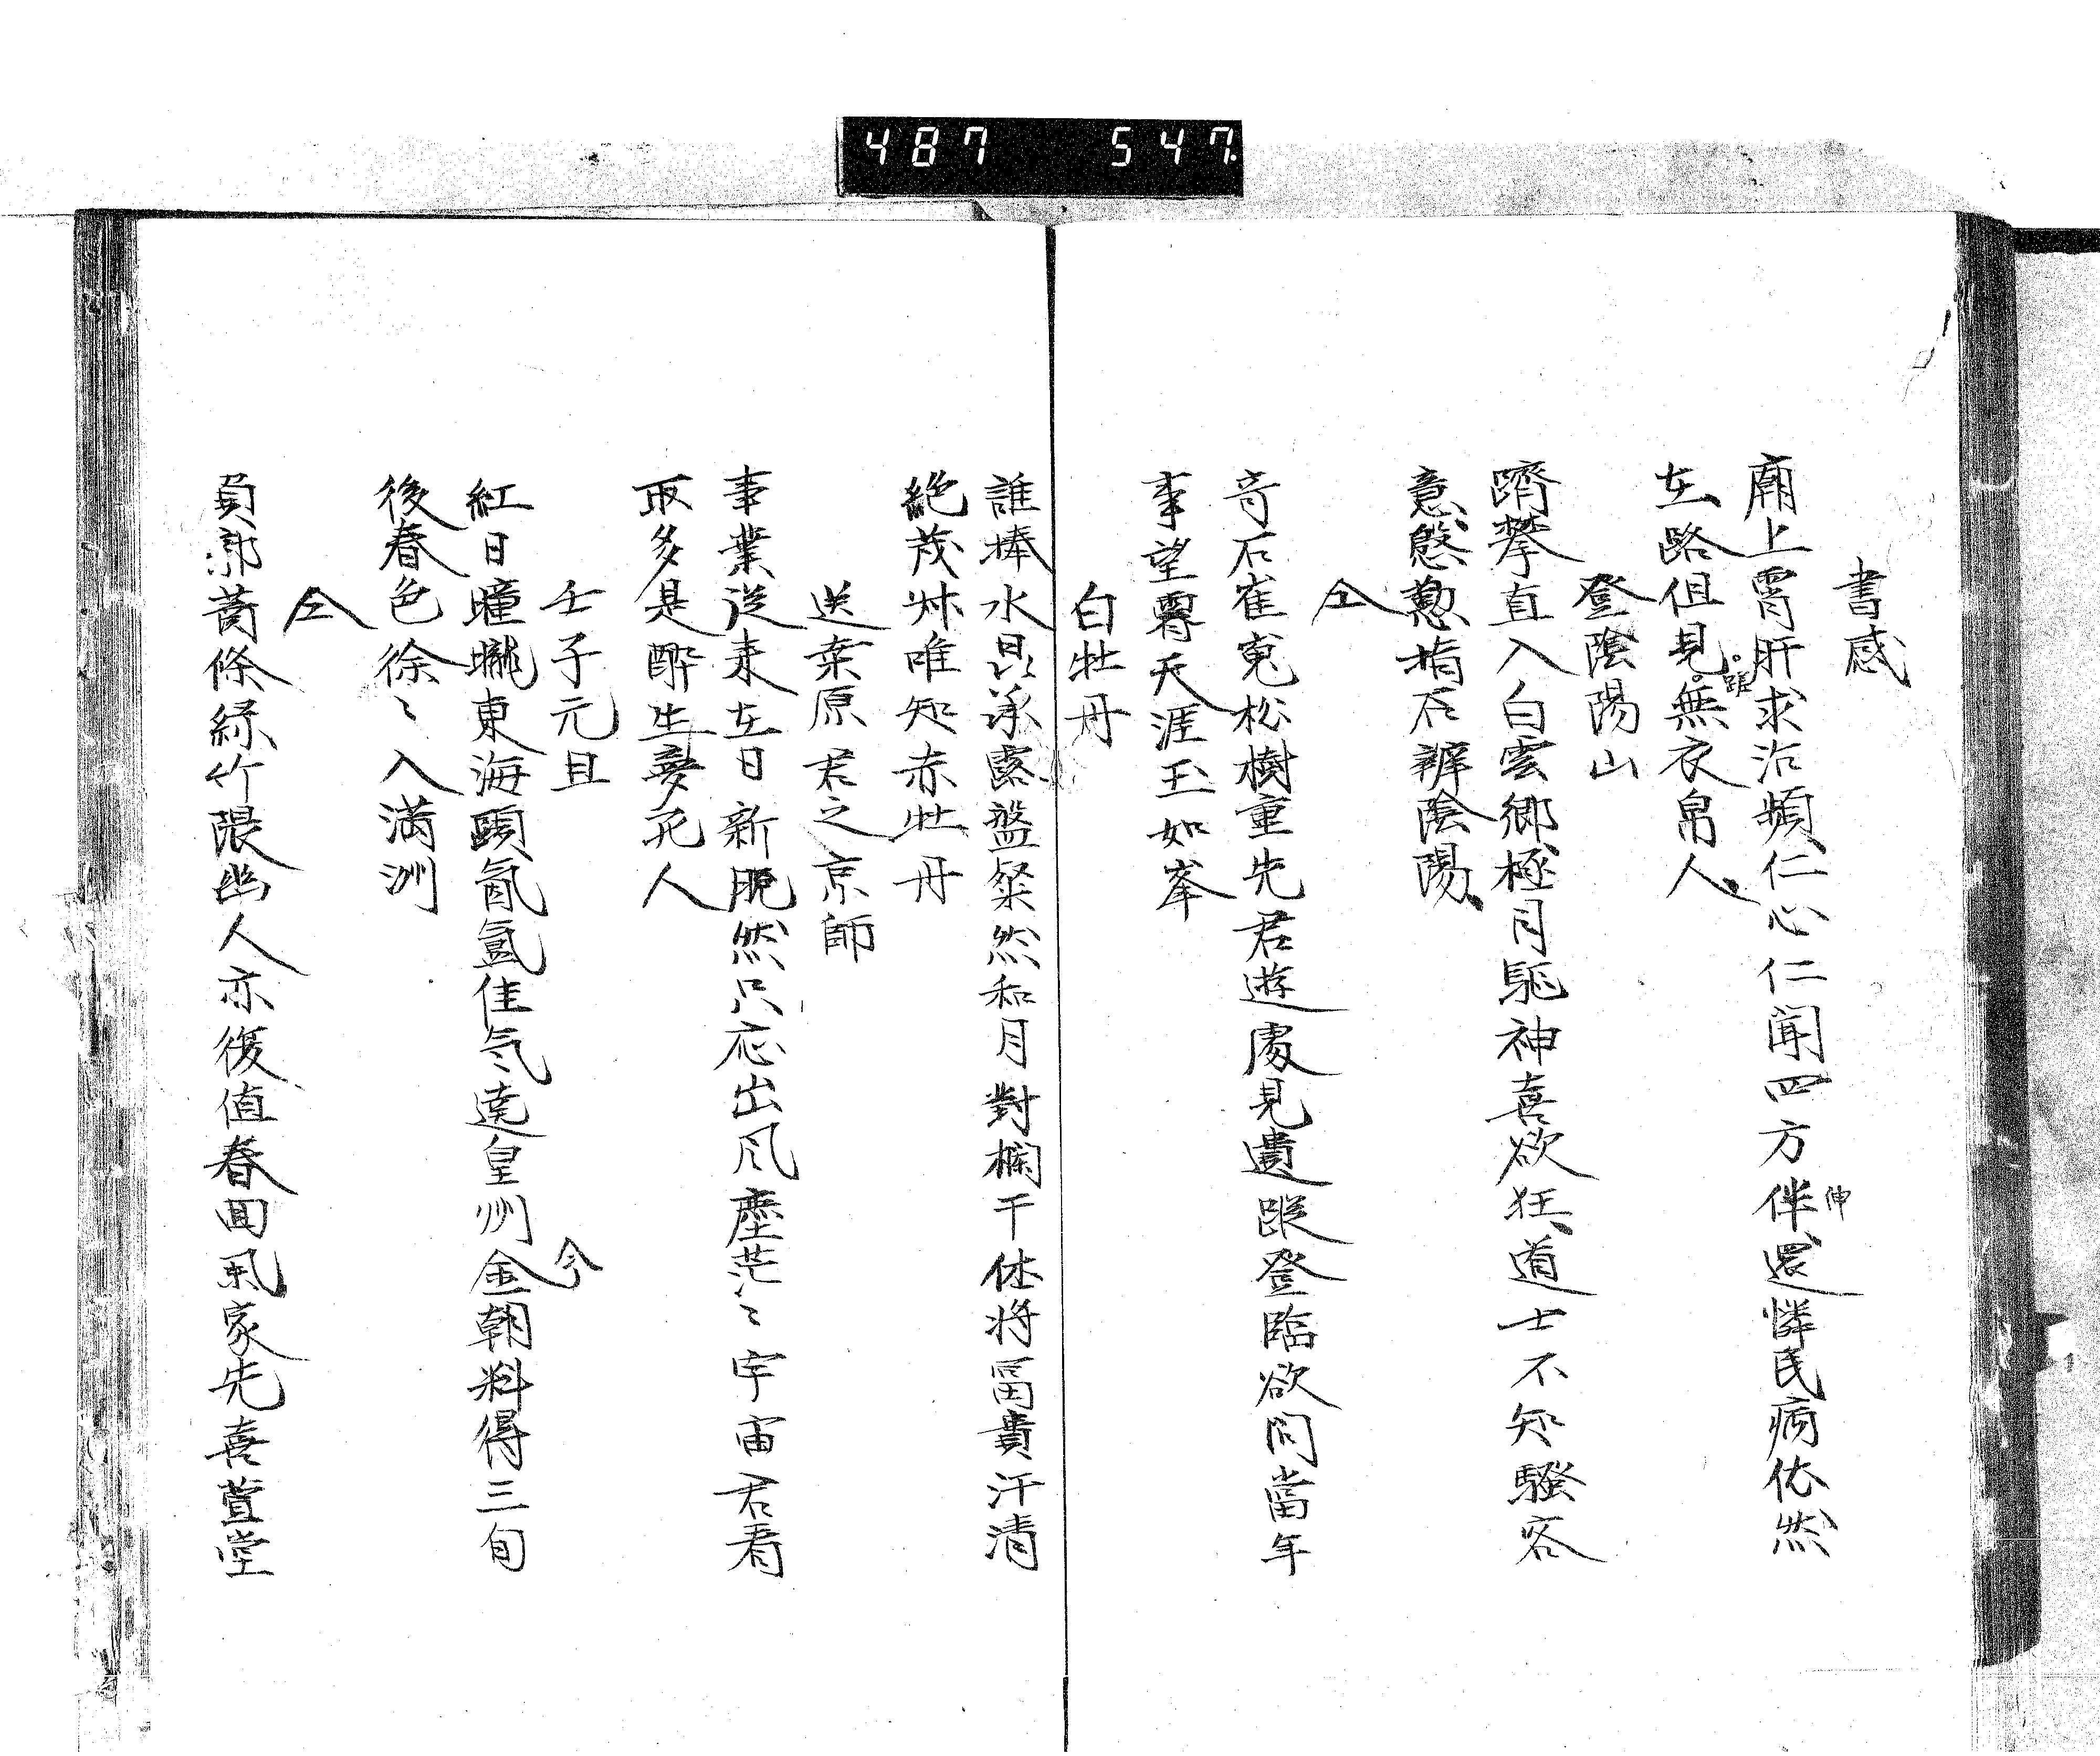 487 547
書感
廟上宵肝求治頻仁心仁聞四方伴還憐民病依然
伸
在路但見無衣帛人
踞
登陰陽山
躋攀直入白雲郷極目駈神喜欲狂道士不知騒客
意慇懃指石辨陰陽
仝
奇石崔嵬松樹重先君遊處見遺蹤登臨欲問當年
事望霽天涯玉如峯
白牡丹
誰捧水晶承露盤粲然和月對欄干休将冨貴汗清
絶茂叔唯知赤牡丹
送桒原君之京師
事業従来在日新脱然只応出风塵茫〻宇宙君看
取多是醉生夢死人
壬子元旦
紅日曈曨東海頭氤氳佳気遶皇州金朝料得三旬
今
後春色徐〻入満洲
仝
負郭黄條緑竹隈幽人亦復値春回風家先喜萱堂